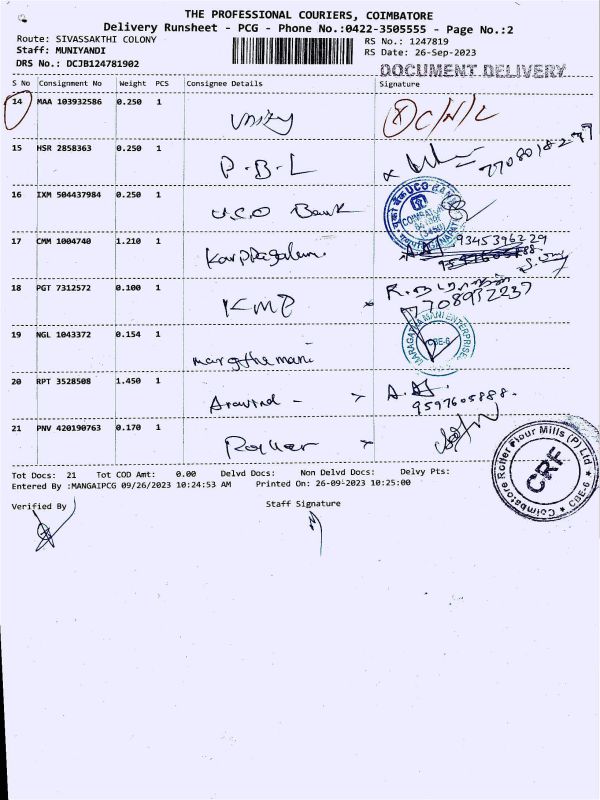 THE PROFESSIONAL COURIERS, COIMBATORE
Delivery Runsheet - PCG - Phone No.:0422-3505555 - Page No.:2
Route: SIVASSAKTHI COLONY RS No.: 1247819
Staff: MUNIYANDI RS Date: 26-Sep-2023
DRS No.: DCJB124781902 DOCUMENT DELIVERY
S No Consignment No Weight PCS Consignee Details Signature
14 MAA 103932586 0.250 1 Unity C/N/L
15 HSR 2858363 0.250 1 P.B.L
16 IXM 504437984 0.250 1 U.C.O Bank
UCO BANK
17 CMM 1004740 1.210 1 Karppagalum 9345396229
18 PGT 7312572 0.100 1 KMP
7708932237
19 NGL 1043372 0.154 1
MARAGATHA MANI ENTERPRISES
CBE-6
20 RPT 3528508 1.450 1 Aravind - A.A
9597605888.
21 PNV 420190763 0.170 1 Roller
Coimbatore Roller Flour Mills (P) Ltd
CRF
CBE-6
Tot Docs: 21 Tot COD Amt: 0.00 Delvd Docs: Non Delvd Docs: Delvy Pts:
Entered By :MANGAIPCG 09/26/2023 10:24:53 AM Printed On: 26-09-2023 10:25:00
Verified By Staff Signature